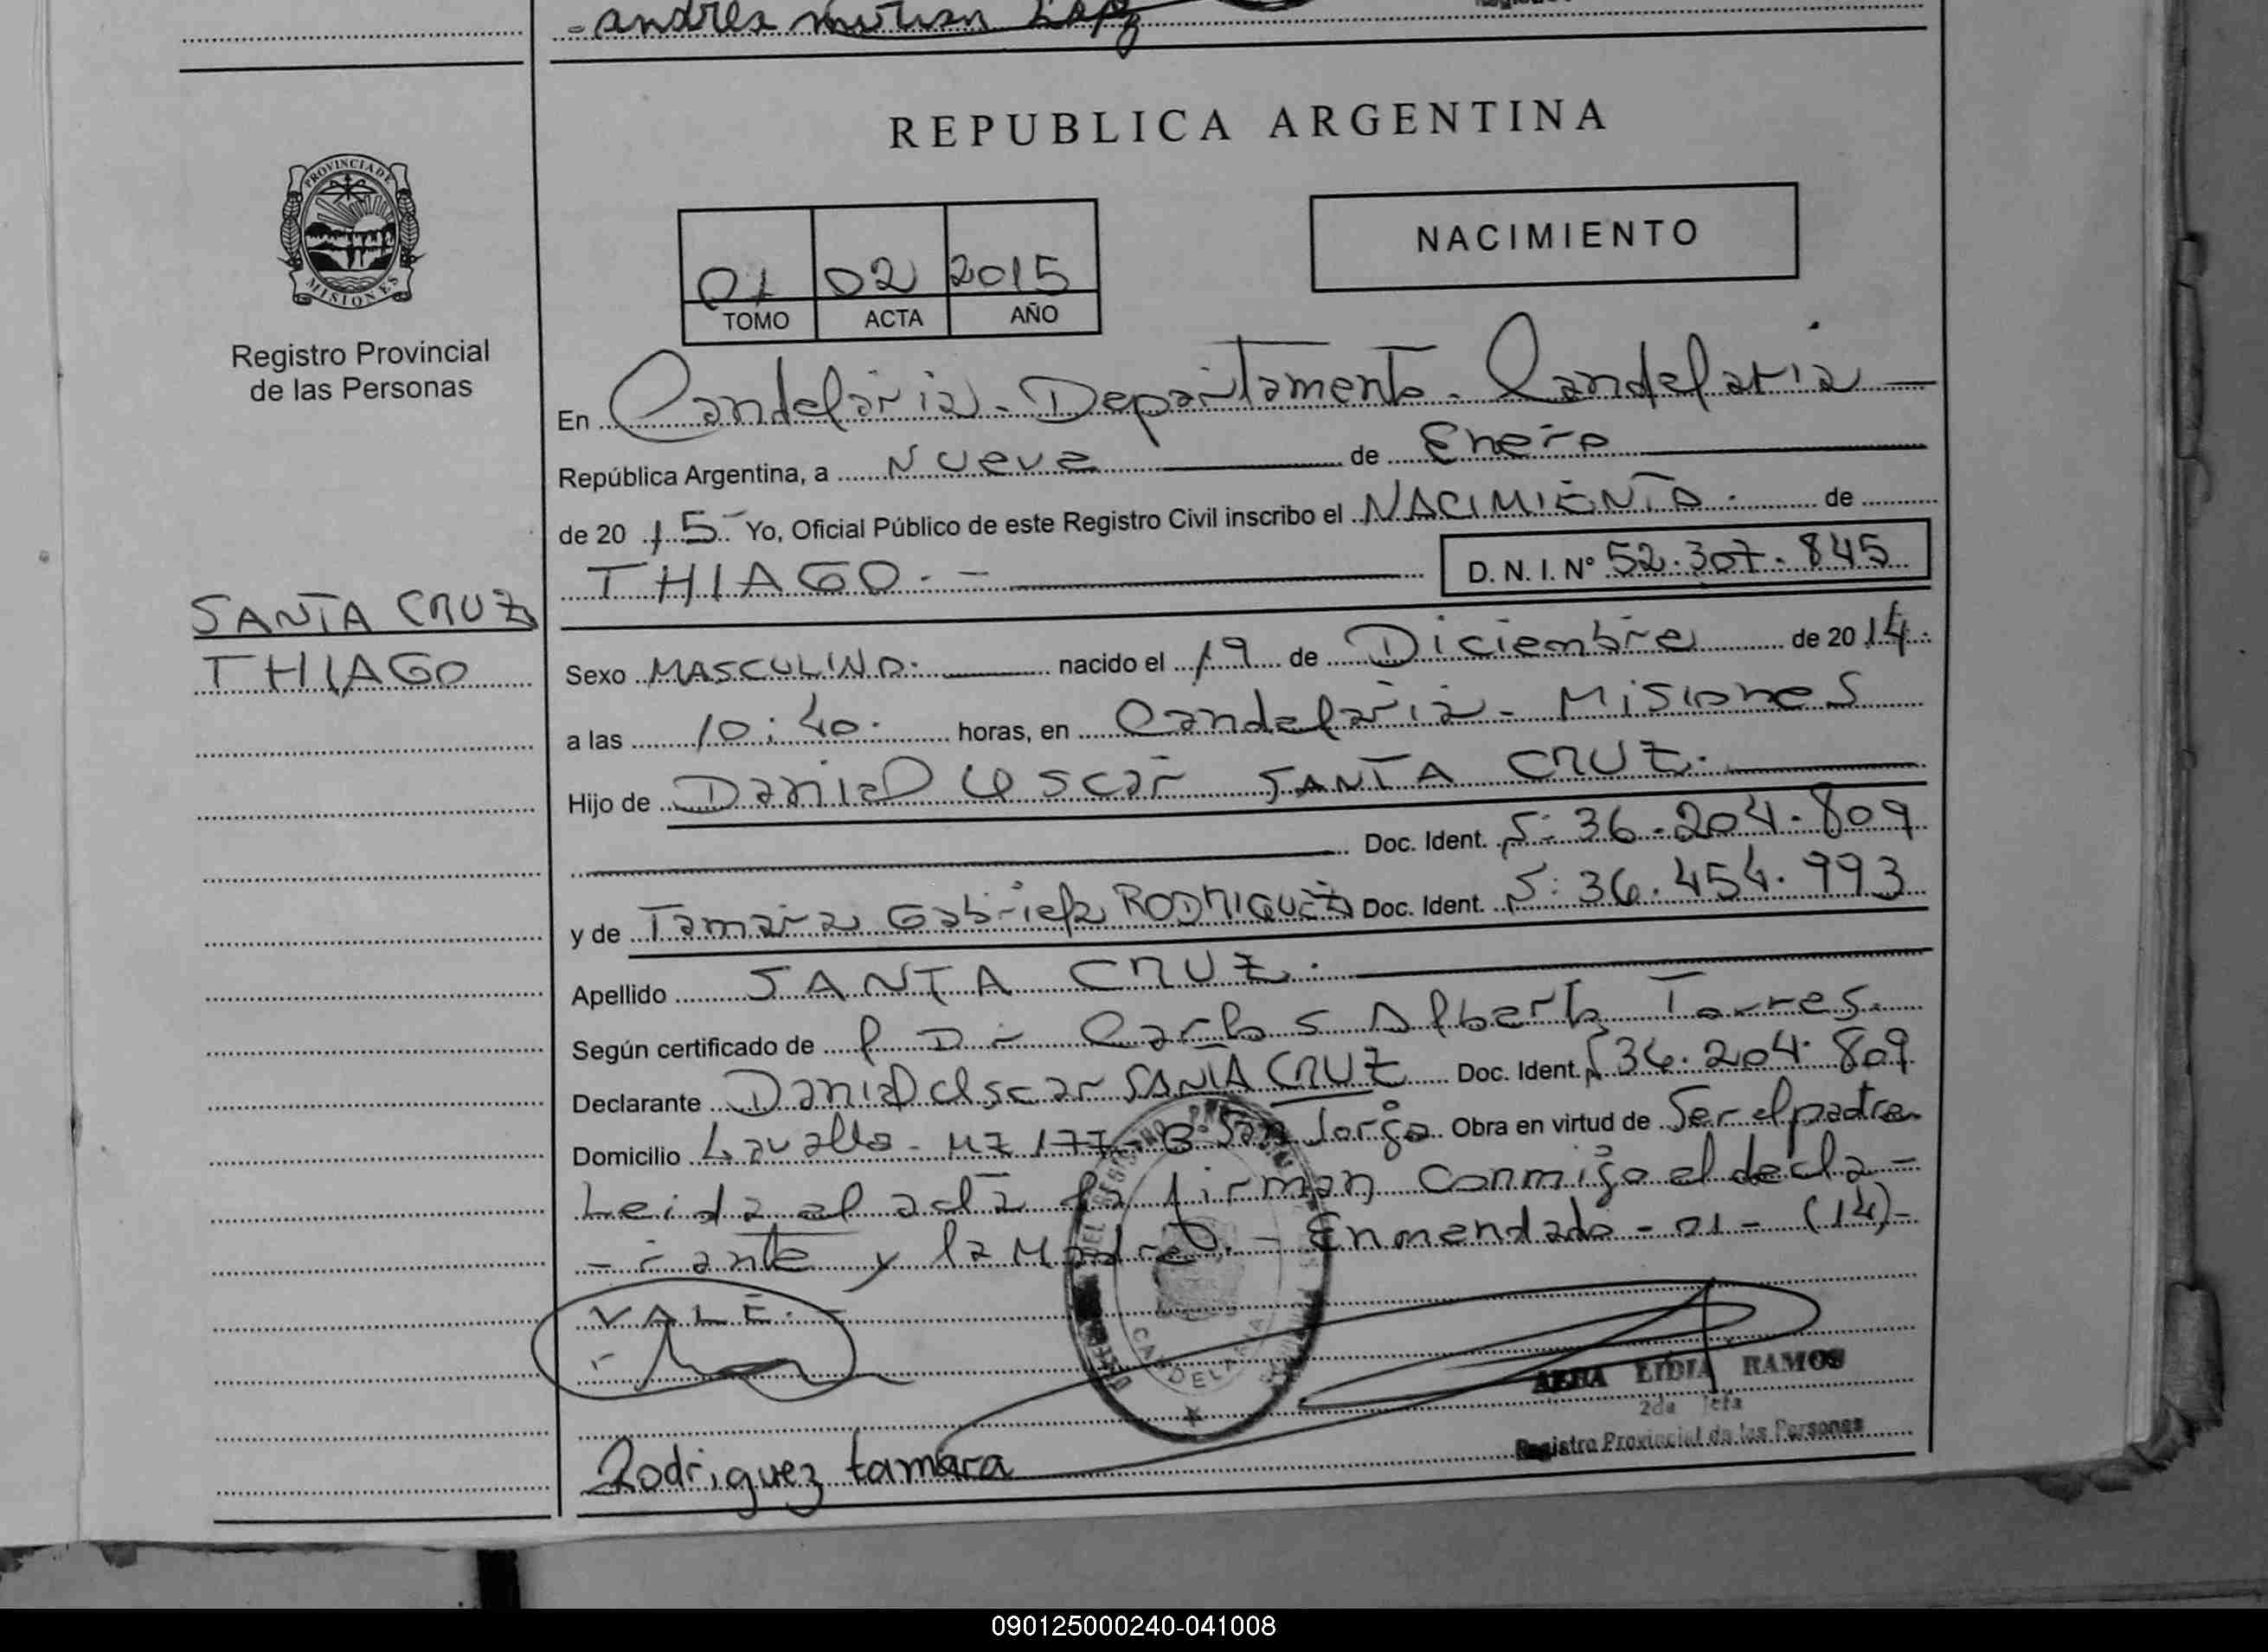 -andres
REPUBLICA ARGENTINA
PROVINCIA DE
MISIONES
Registro Provincial
de las Personas
01 02 2015
TOMO ACTA AÑO
NACIMIENTO
En Candelaria - Departamento - Candelaria
República Argentina, a Nueve de Enero
de 20 15 Yo, Oficial Público de este Registro Civil inscribo el NACIMIENTO. de
THIAGO.- D. N. I. Nº 52.307.845
SANTA CRUZ
THIAGO
Sexo MASCULINO. nacido el 19 de Diciembre de 20 14.
a las 10:40. horas, en Candelaria - Misiones
Hijo de Daniel Oscar SANTA CRUZ.
Doc. Ident. 36.204.809
y de Tamara Gabriela RODRIGUEZ Doc. Ident. 36.454.993
Apellido SANTA CRUZ.
Según certificado de Dr Carlos Alberto Torres.
Declarante Daniel Oscar SANTA CRUZ Doc. Ident. 36.204.809
Domicilio Lavalle - MZ 177 - B° San Jorge Obra en virtud de Ser el padre
Leida al acta la firman conmigo el decla-
-rante y la Madre.- Enmendado - 01 - (14)-
VALE.-
CANDELARIA
ALBA LIDIA RAMOS
2da Jefa
Registro Provincial de las Personas
Rodriguez tamara
090125000240-041008